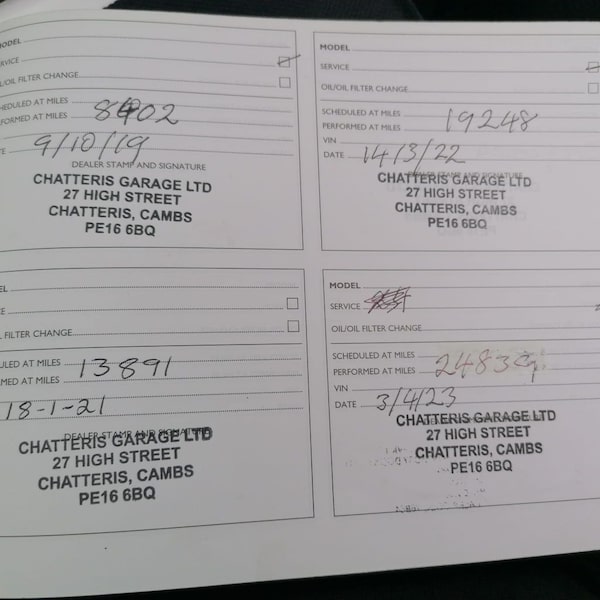 MODEL
SERVICE
OIL/OIL FILTER CHANGE
SCHEDULED AT MILES
PERFORMED AT MILES 8402
9/10/19
DEALER STAMP AND SIGNATURE
CHATTERIS GARAGE LTD
27 HIGH STREET
CHATTERIS, CAMBS
PE16 6BQ
MODEL
SERVICE
OIL/OIL FILTER CHANGE
SCHEDULED AT MILES
PERFORMED AT MILES 19248
VIN
DATE 14/3/22
CHATTERIS GARAGE LTD
27 HIGH STREET
CHATTERIS, CAMBS
PE16 6BQ
EL
E
FILTER CHANGE
ULED AT MILES
MED AT MILES 13891
18-1-21
DEALER STAMP AND SIGNATURE
CHATTERIS GARAGE LTD
27 HIGH STREET
CHATTERIS, CAMBS
PE16 6BQ
MODEL
SERVICE
OIL/OIL FILTER CHANGE
SCHEDULED AT MILES
PERFORMED AT MILES 24839
VIN
DATE 3/4/23
CHATTERIS GARAGE LTD
27 HIGH STREET
CHATTERIS, CAMBS
PE16 6BQ